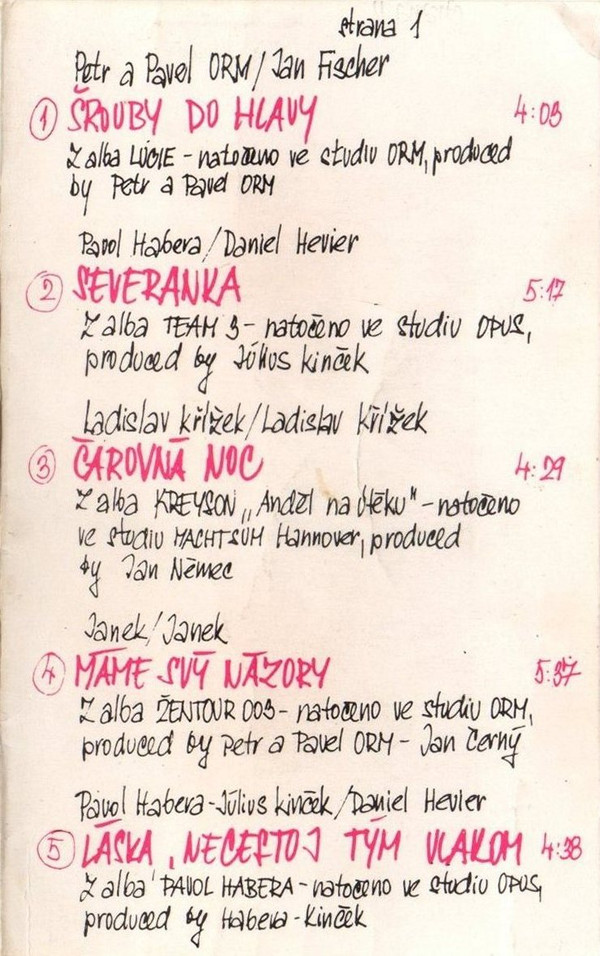 strana 1
Petr a Pavel ORM/Jan Fischer
① ŠROUBY DO HLAVY 4:03
Z alba LUCIE - natočeno ve studiu ORM, produced
by Petr a Pavel ORM
Pavol Habera/Daniel Hevier
② SEVERANKA 5:17
Z alba TEAM 3 - natočeno ve studiu OPUS,
produced by Július Kinček
Ladislav Křížek/Ladislav Křížek
③ ČAROVNÁ NOC 4:29
Z alba KREYSON „Anděl na útěku" - natočeno
ve studiu MACHTSUM Hannover, produced
by Jan Němec
Janek/Janek
④ MÁME SVÝ NÁZORY 5:37
Z alba ŽENTOUR 003 - natočeno ve studiu ORM,
produced by Petr a Pavel ORM - Jan Černý
Pavol Habera - Július Kinček/Daniel Hevier
⑤ LÁSKA, NECESTUJ TÝM VLAKOM 4:38
Z alba PAVOL HABERA - natočeno ve studiu OPUS,
produced by Habera - Kinček